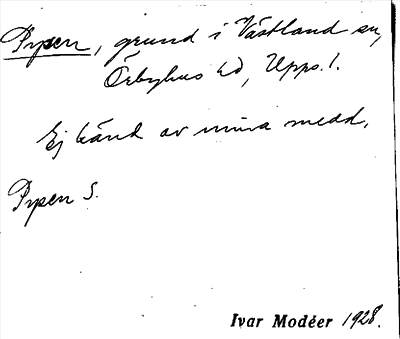 Prpen, grund i Västland sn,
Örbyhus hd, Upps. l.
Ej känd av mina medd.
Prpen S.
Ivar Modéer 1928.